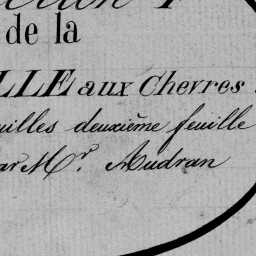 de la
LLE aux Chevres
uilles deuxième feuille
ar Mr. Audran